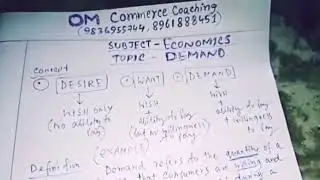 OM Commerce Coaching
(9836955744, 8961888451)
SUBJECT - ECONOMICS
TOPIC - DEMAND
Content
DESIRE WANT DEMAND
WISH ONLY WISH WISH
(No ability to + +
pay) ability to pay ability to pay
(but no willingness) + willingness
to pay
(EXAMPLE)
Definition Demand refers to the quantity of a
that consumers are willing and
during a